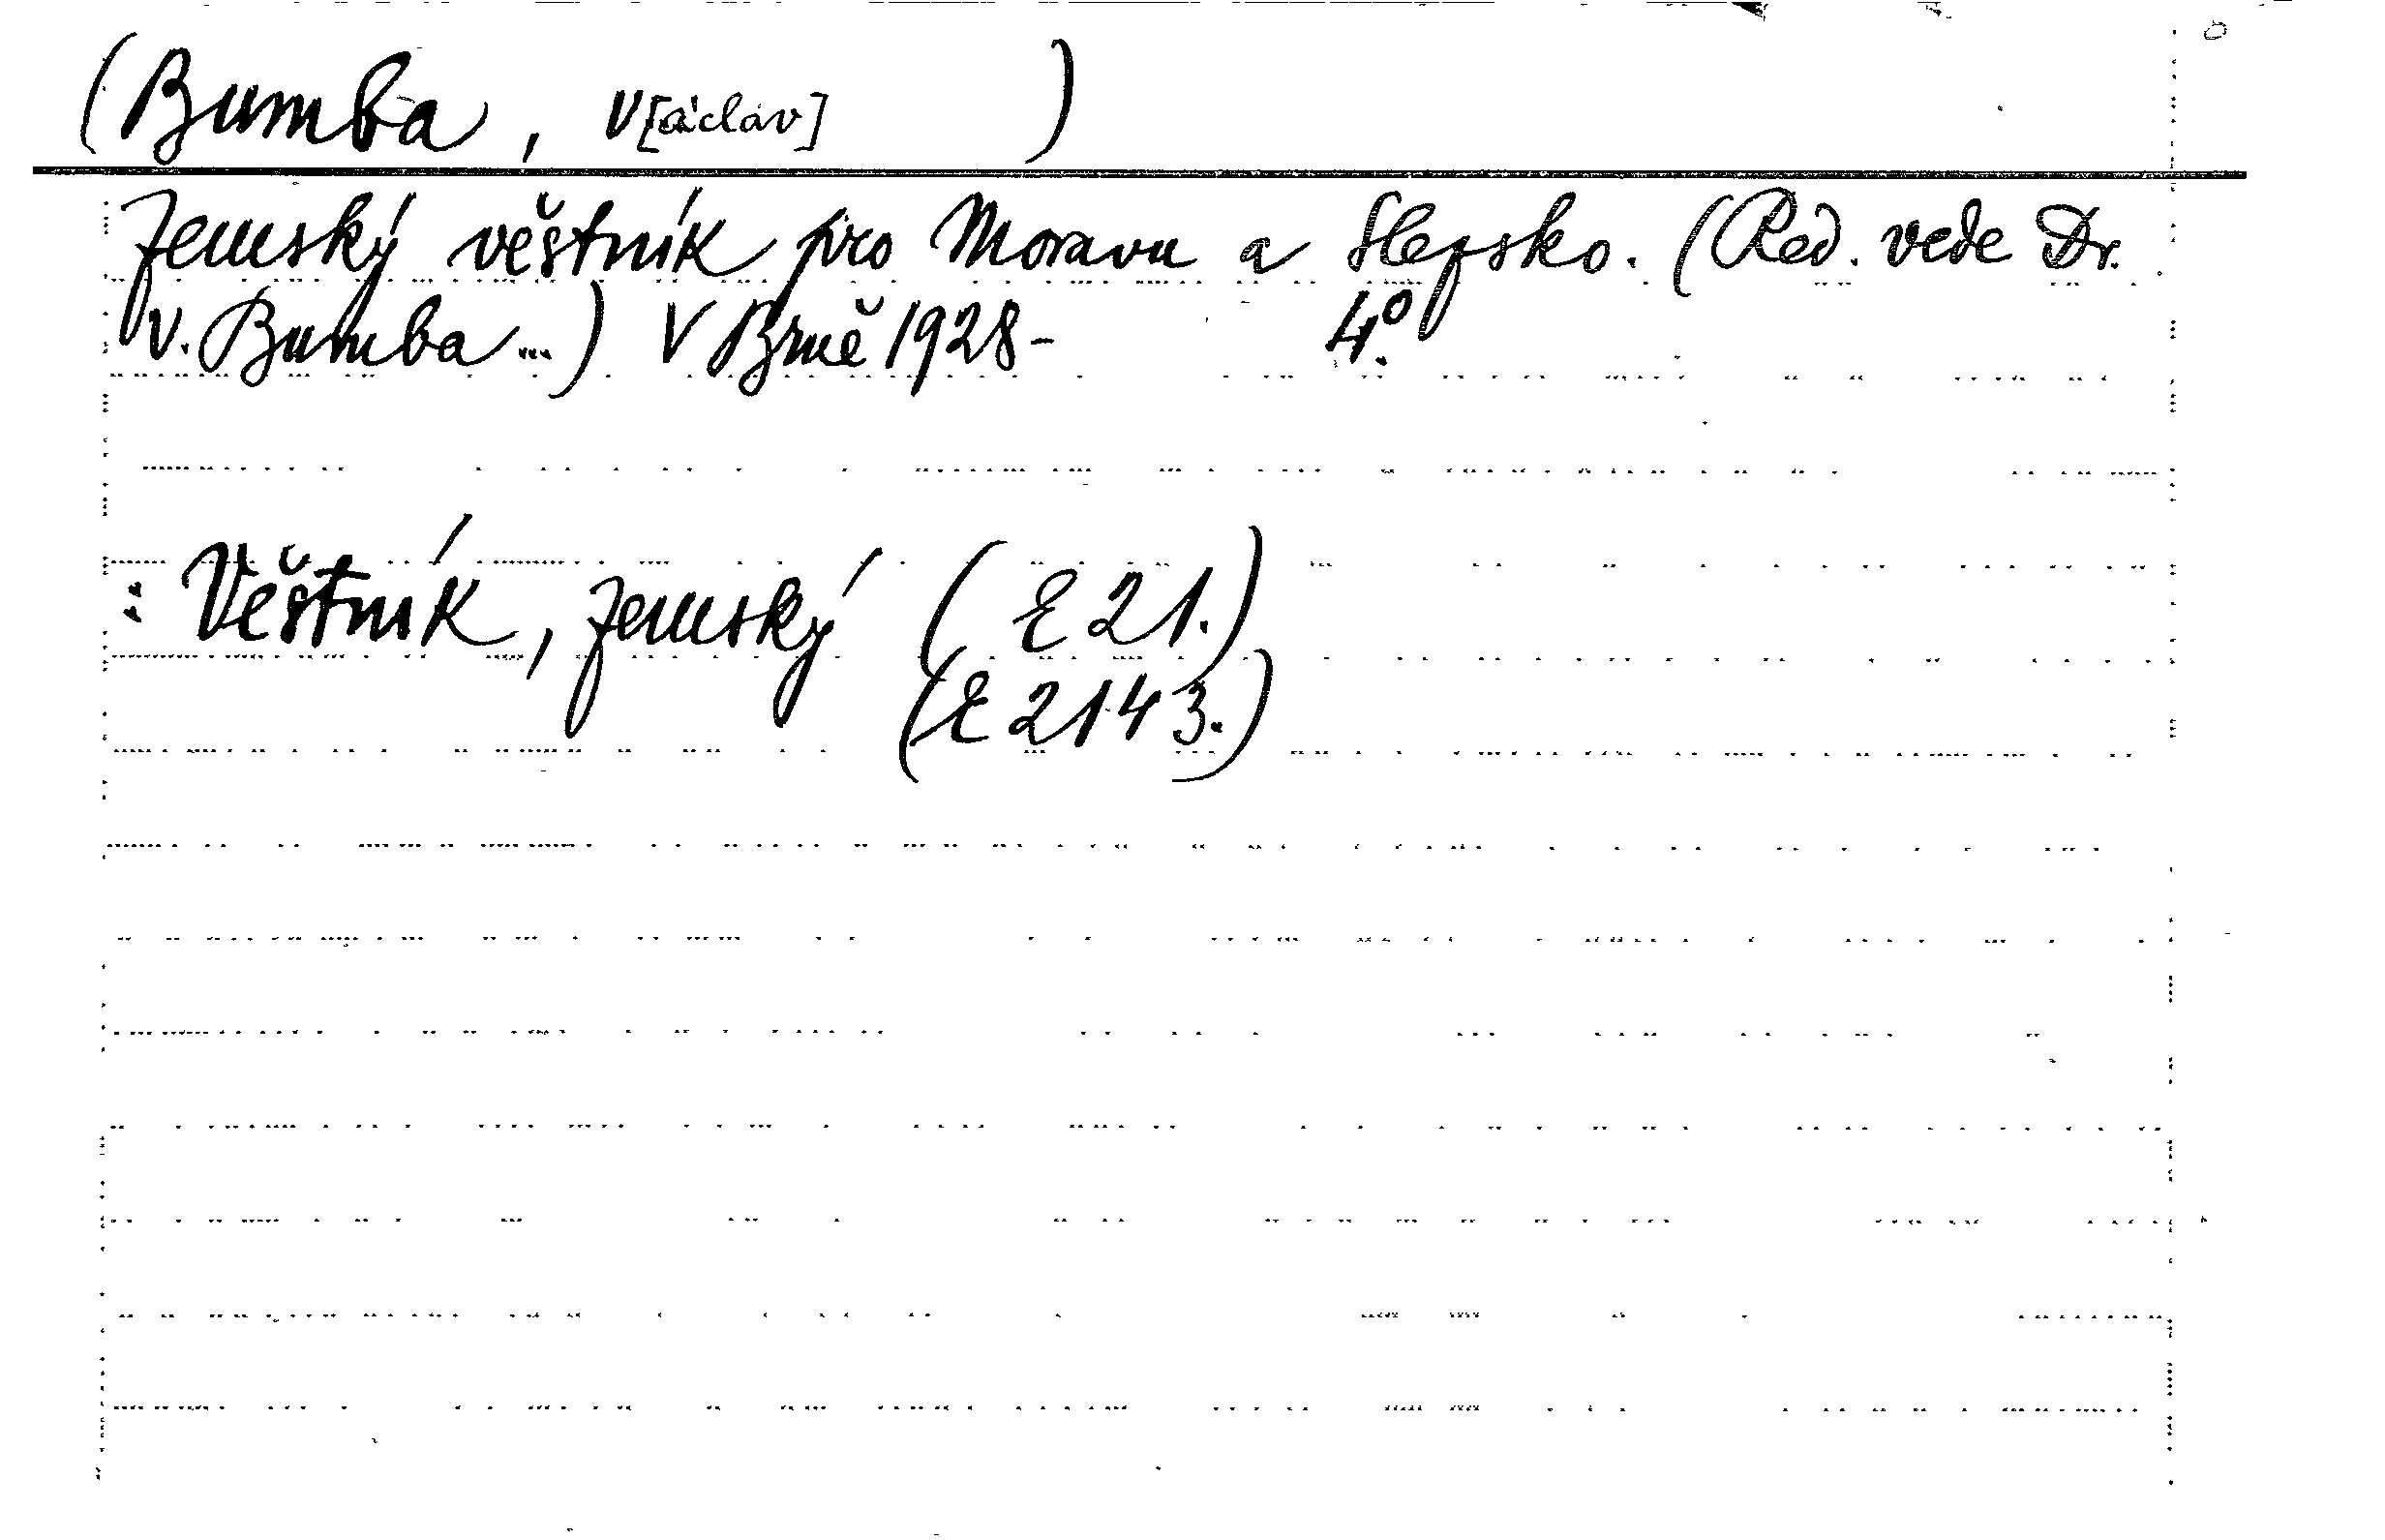 (Bumba, V[áclav] )
Zemský věstník pro Moravu a Slezsko. (Red. vede Dr.
V. Bumba...) V Brně 1928- 4.°
: Věstník, zemský (E 21.)
(E 2143.)